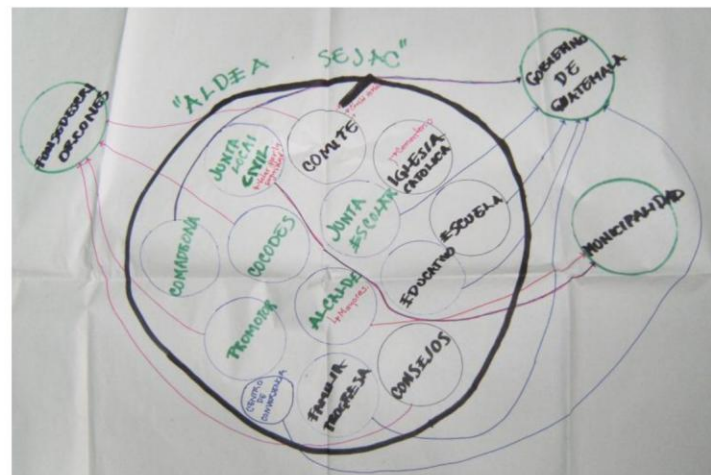 "ALDEA SEJAC"
ORCONES
GOBIERNO
DE
GUATEMALA
MUNICIPALIDAD
JUNTA
LOCAL
CIVIL
COMITE
IGLESIA
CATOLICA
COMADRONA
COCODES
JUNTA
ESCOLAR
ESCUELA
EDUCATIVO
PROMOTOR
ALCALDE
CENTRO
DE
CONVERGENCIA
FAMILIA
PROGRESA
CONSEJOS